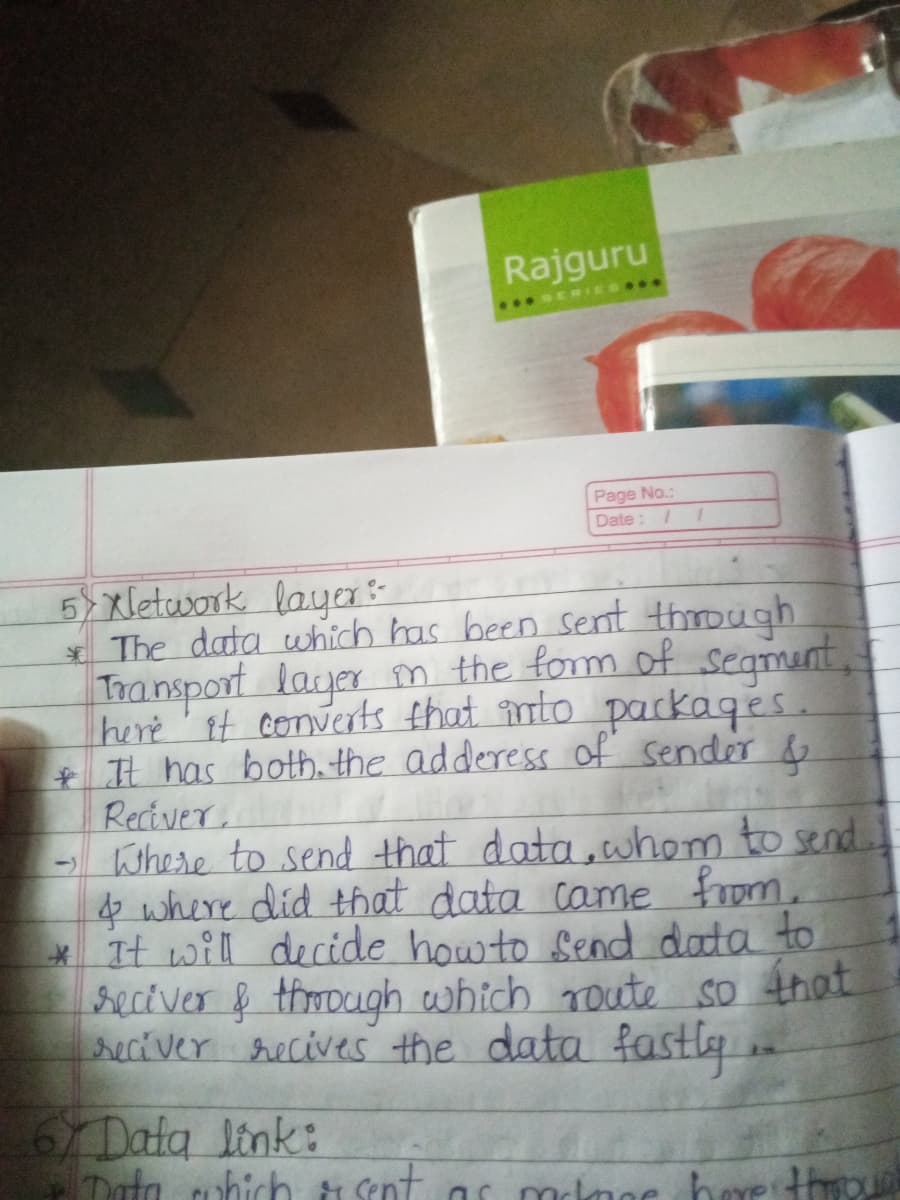 Rajguru
SERIES
Page No.:
Date : / /
5) Network layer :-
* The data which has been sent through
Transport layer in the form of segment,
here it converts that into packages.
* It has both. the adderess of sender &
Reciver.
→ Where to send that data, whom to send
& where did that data came from.
* It will decide how to send data to
reciver & through which route so that
reciver recives the data fastly ..
6) Data link:
* Data which is sent as package here through